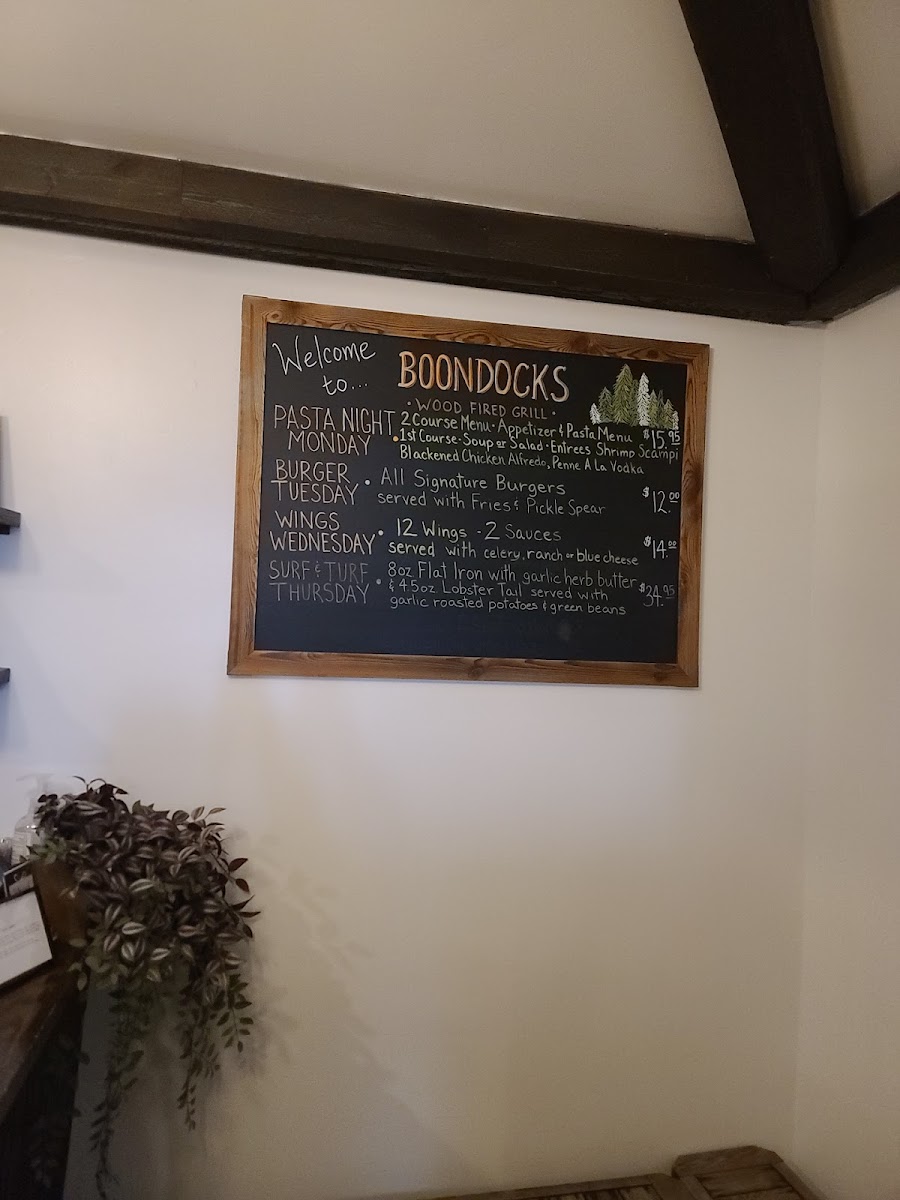 Welcome
to...
BOONDOCKS
• WOOD FIRED GRILL •
PASTA NIGHT
MONDAY
• 2 Course Menu • Appetizer & Pasta Menu $15.95
1st Course - Soup or Salad • Entrees Shrimp Scampi
Blackened Chicken Alfredo, Penne A La Vodka
BURGER
TUESDAY
• All Signature Burgers
served with Fries & Pickle Spear
$12.00
WINGS
WEDNESDAY
• 12 Wings - 2 Sauces
served with celery, ranch or blue cheese
$14.00
SURF & TURF
THURSDAY
• 8oz Flat Iron with garlic herb butter
& 4.5oz Lobster Tail served with
garlic roasted potatoes & green beans
$34.95